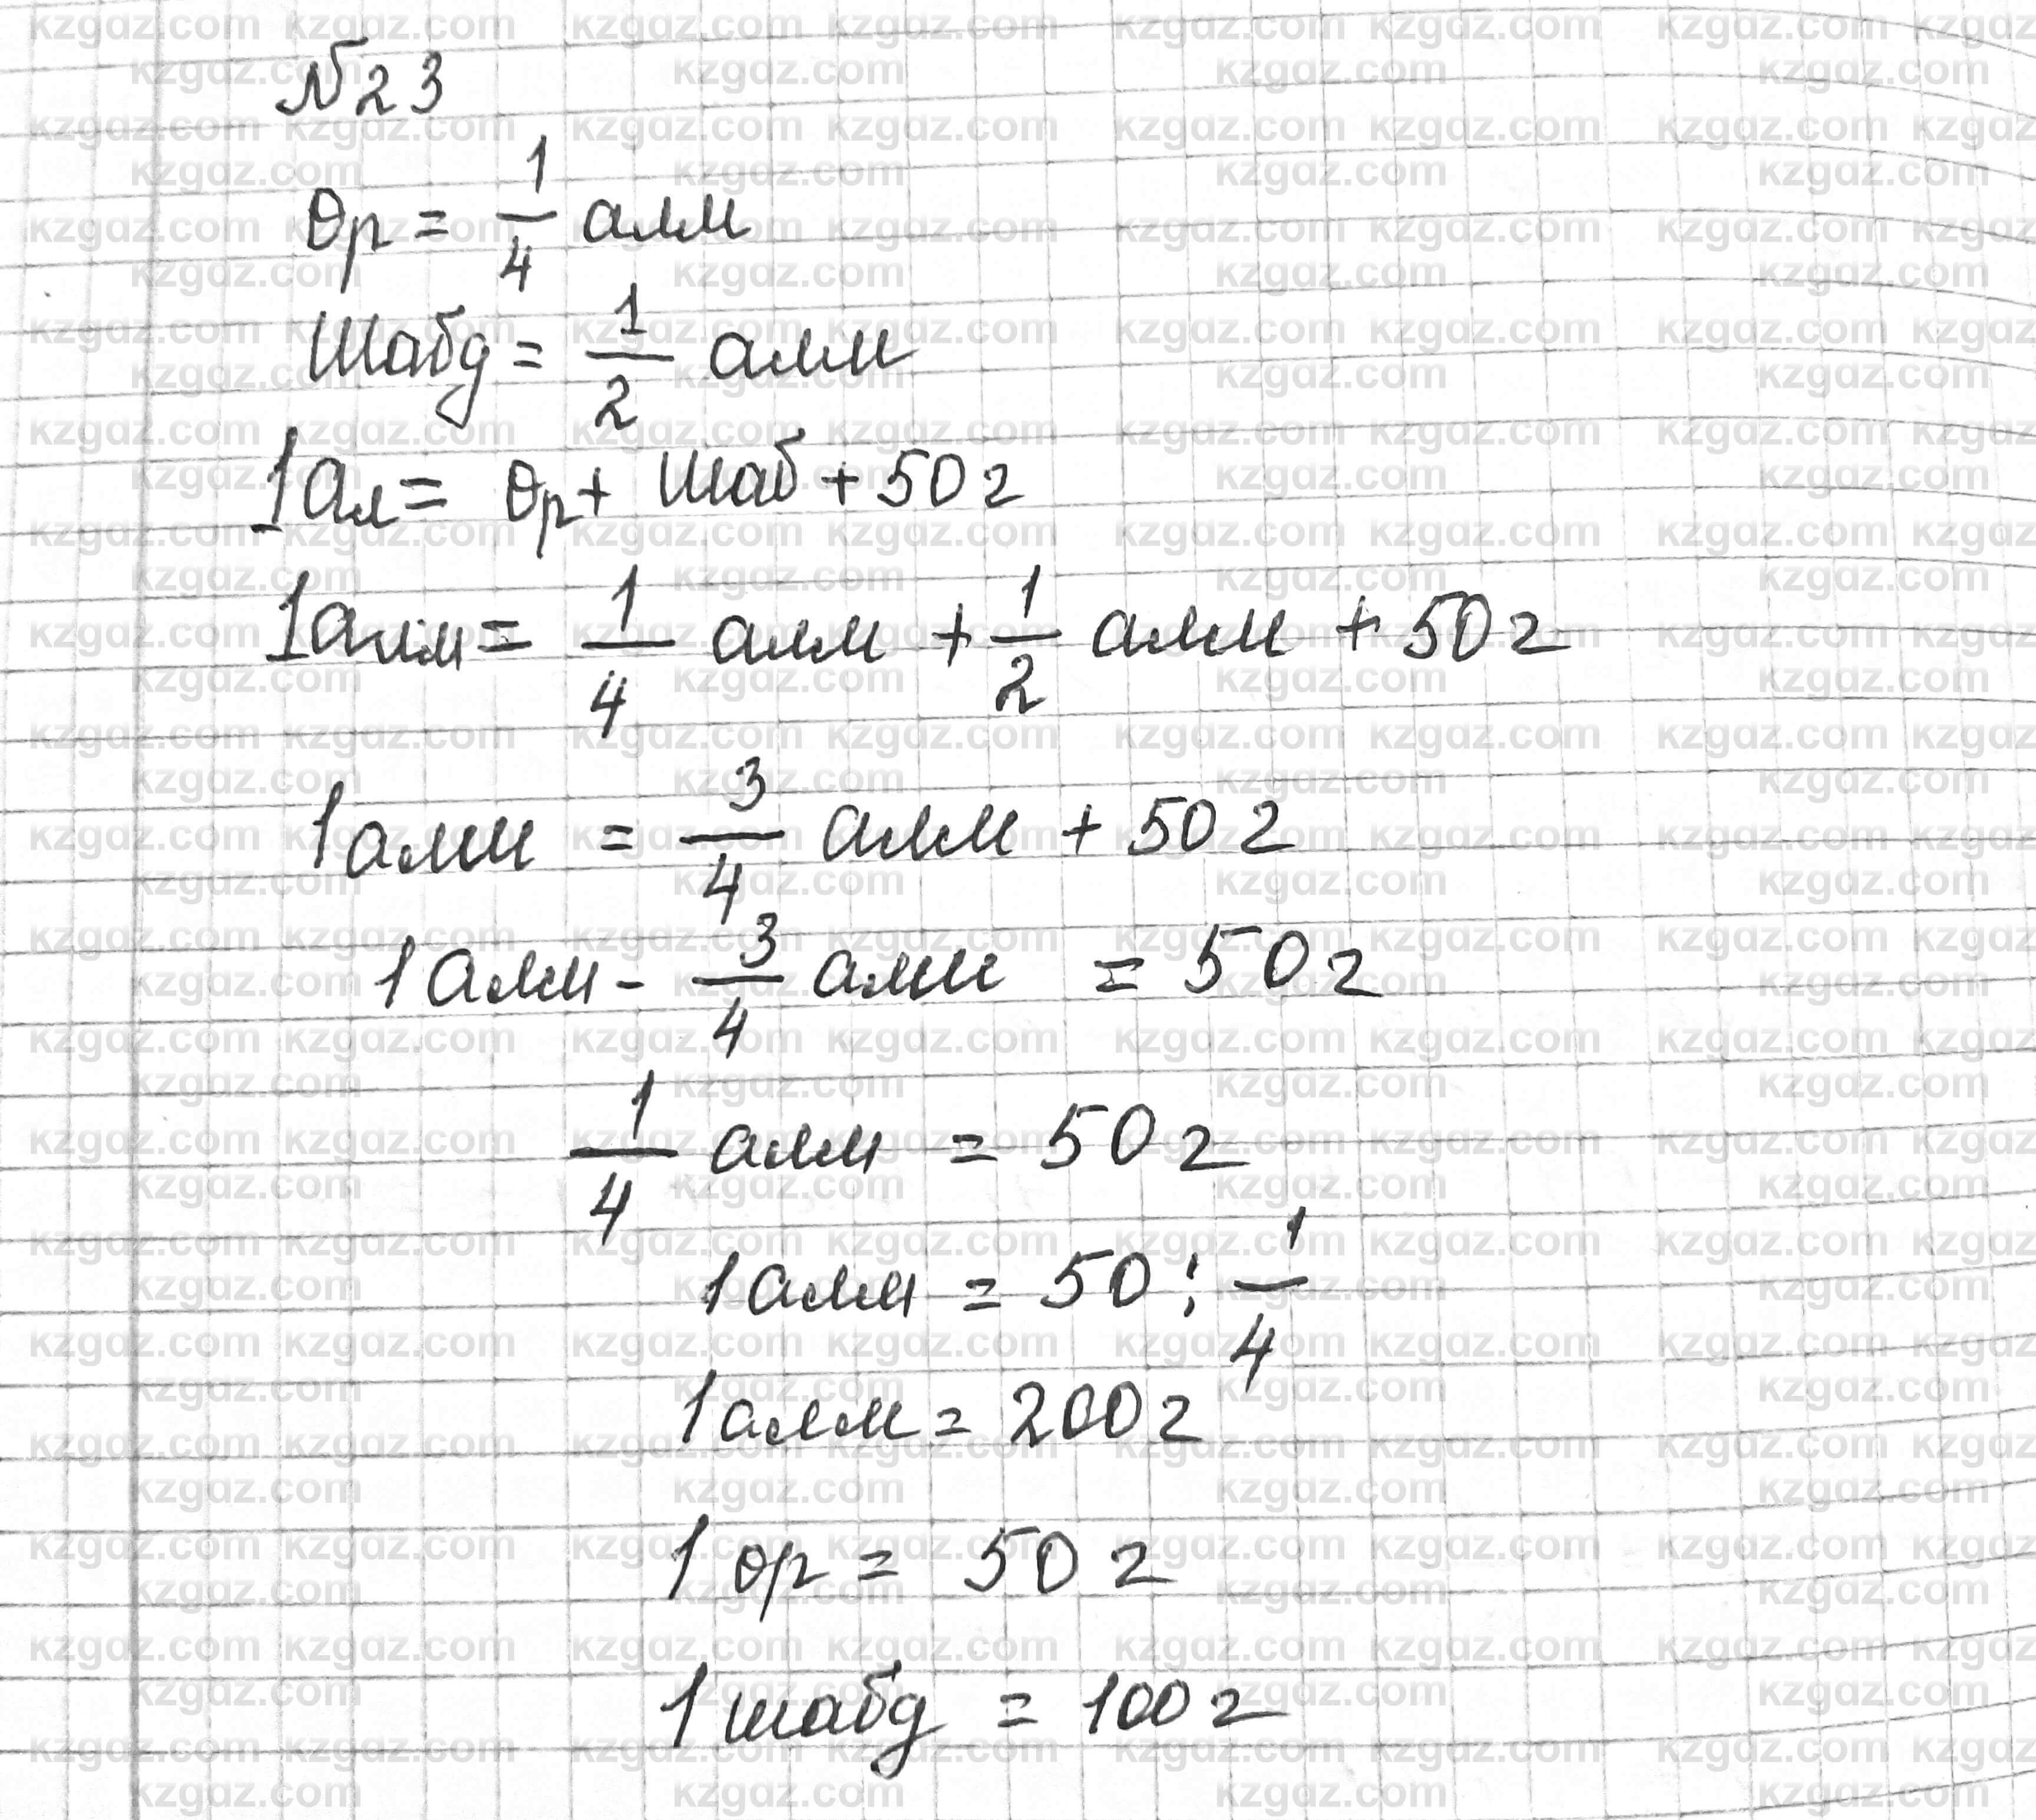 №23
Өр = 1/4 алм
Шабд = 1/2 алм
1ал = Өр + Шаб + 50г
1алм = 1/4 алм + 1/2 алм + 50г
1алм = 3/4 алм + 50г
1алм - 3/4 алм = 50г
1/4 алм = 50г
1алм = 50 : 1/4
1алм = 200г
1 өр = 50г
1 шабд = 100г
kzgaz.com